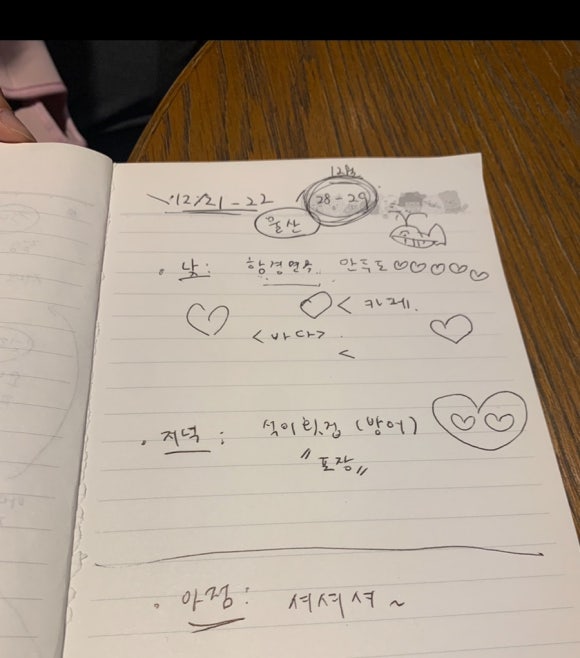 12월
12/21 - 22 28 - 29
울산
· 낮 : 함경면옥 만두도
< 카페.
< 바다 >
<
· 저녁 : 석이횟집 (방어)
"포장"
· 아점 : 셔셔셔 ~